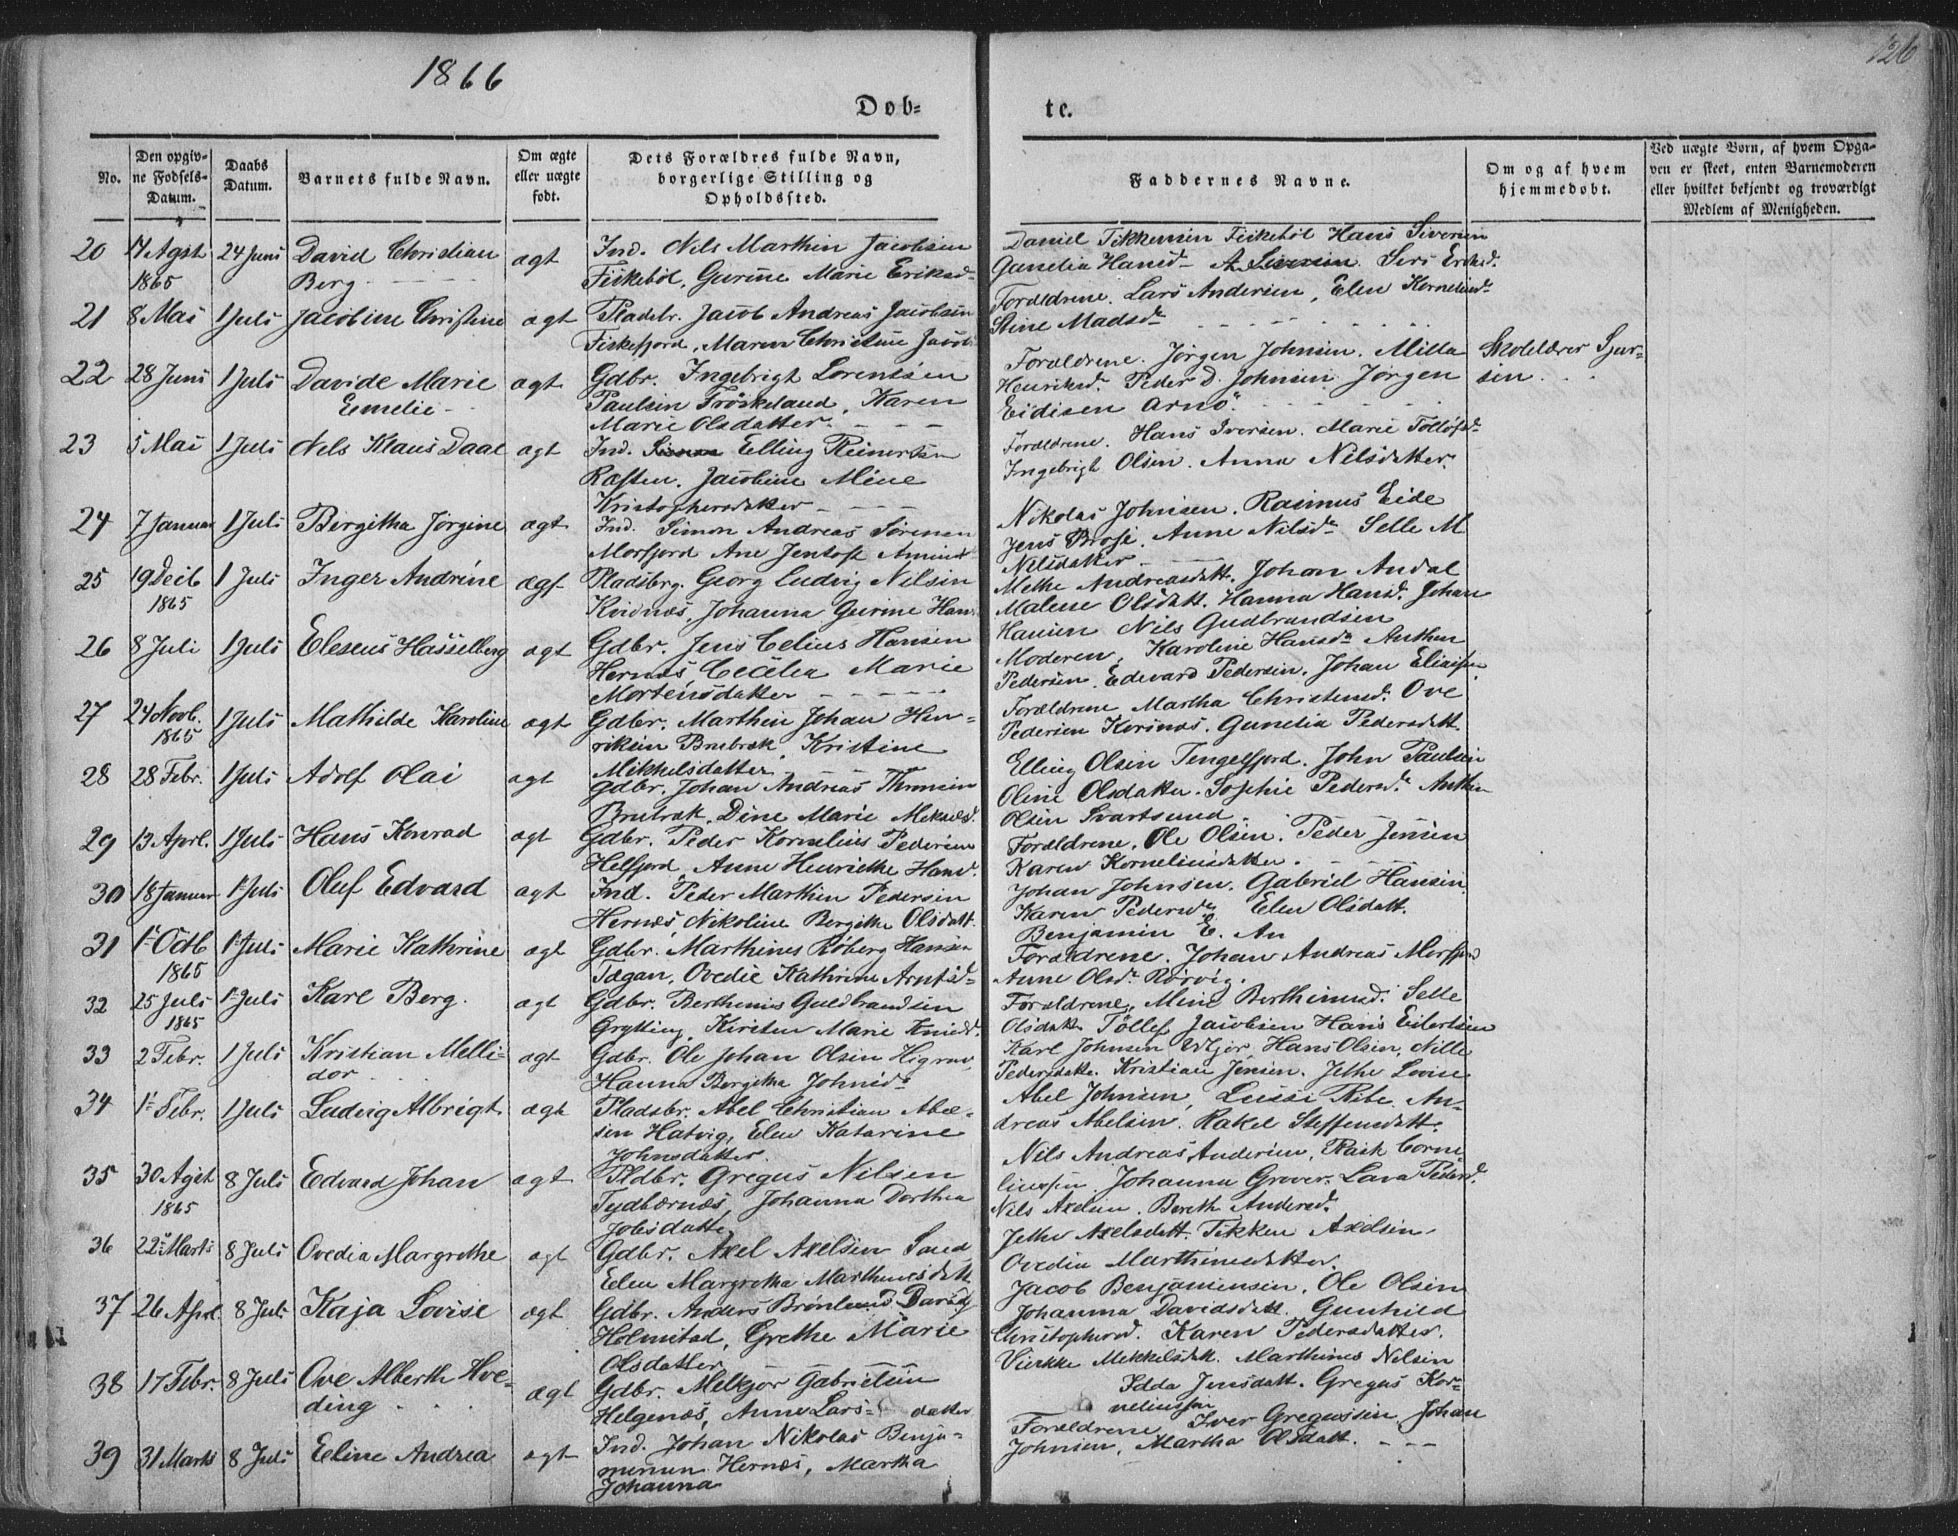 1866
126
Døb=
te.
No.
Den opgiv=
ne Fødsels=
Datum.
Daabs
Datum.
Barnets fulde Navn.
Om ægte
eller uægte
født.
Dets Forældres fulde Navn,
borgerlige Stilling og
Opholdssted.
Faddernes Navne.
Om og af hvem
hjemmedøbt.
Ved uægte Børn, af hvem Opga-
ven er skeet, enten Barnemoderen
eller hvilket bekjendt og troværdigt
Medlem af Menigheden.
20 17 Agst 24 Juni David Christian ægt Ind. Nils Marthin Jacobsen
1865 Berg Fiskebøl, Gurine Marie Eriksd
Daniel Tikkemsen Fiskebøl Hans Siversen
Gunelia Hansd Sers Eriksd.
21 8 Mai 1 Juli Jacobine Christine ægt Pladsbr. Jacob Andreas Jacobsen
Fiskefjord, Maren Christine Jacob
Forældrene. Lars Andersen, Elen Kornelusd
Stine Madsd
22 28 Juni 1 Juli Davide Marie ægt Gdbr. Ingebrigt Lorentsen
Emelie Paulsen Frøskeland, Karen
Marie Olsdatter
Forældrene. Jørgen Johnsen. Milla
Henriksd. Peder D. Johnsen Jørgen
Eidisen Arnø.
Skolelærer Sjur-
sen
23 5 Mai 1 Juli Nels Klaus Daal ægt Ind. Elling Reinertsen
Raften. Jacobine Mine
Kristophersdatter
Forældrene. Hans Iversen. Marie Tolløfsd
Ingebrigt Olsen. Anna Nilsdatter.
24 7 Januar 1 Juli Bergitha Jørgine ægt Ind. Simon Andreas Sørensen
Morfjord Ane Jentoft
Nikolai Johnsen. Rasmus Eide
Jens Brose. Anne Nilsd Selle M
Nilsdatter
25 19 Decb 1 Juli Inger Andrine ægt Pladsbrg. Georg Ludvig Nilsen
1865 Kvidnæs, Johanna Gurine Hans
Methe Andreasdatt. Johan Andal
Malene Olsdatt. Hanna Hansd. Johan
Hansen Nils Gudbrandsen
26 8 Juli 1 Juli Eleseus Hasselberg ægt Gdbr. Jens Celius Hansen
Hernæs, Cecelia Marie
Mortensdatter
Moderen, Karoline Hansd Anthon
Pedersen. Edevard Pedersen. Johan Eliassen
27 24 Novb. 1 Juli Mathilde Karoline ægt Gdbr. Marthin Johan Hen-
1865 riksen Brubræk, Kristine
Mikkelsdatter
Forældrene Martha Christensd. Ove
Pedersen Korsnæs. Gunelia Pedersdatt.
28 28 Febr. 1 Juli Adolf Olai ægt Gdbr. Johan Andreas
Brubræk, Dine Marie
Elling Olsen Tengelfjord. John Paulsen
Oline Olsdatter. Sophie Pedersd. Anthon
Olsen Svartsund
29 13 Aprl. 1 Juli Hans Konrad ægt Gdbr. Peder Kornelius Pedersen
Helfjord, Anne Henriethe Hansd.
Forældrene. Ole Olsen. Peder Jensen
Karen Korneliusdatter.
30 18 Januar 1 Juli Oluf Edvard ægt Ind. Peder Marthin Pedersen
Hernæs, Nikoline Bergithe Olsdatt.
Johan Johnsen. Gabriel Hansen
Karen Pedersd Elen Olsdatt.
Benjamin E. An
31 1 Octb 1 Juli Marie Kathrine ægt Gdbr. Marthinus Røberg Hansen
1865 Tægan, Ovedie Kathrine Arntsd
Forældrene. Johan Andreas Morfjord
Anne Olsd Rørvig.
32 25 Juli 1 Juli Karl Berg. ægt Gdbr. Berthenius Guldbrandsen
1865 Grytting, Kirsten Marie
Forældrene, Mine Berthinusd. Selle
Olsdatt Tøllef Jacobsen Hans Eilertsen
33 2 Febr. 1 Juli Kristian Melli- ægt Gdbr. Ole Johan Olsen Higrav,
dor Hanna Bergitha Johnsd
Karl Johnsen Hans Olsen, Nille
Pedersdatt. Kristian Jensen. Jethe Lovise
34 1 Febr. 1 Juli Ludvig Albrigt ægt Pladsbr. Abel Christian Abel-
sen Hatvig, Elen Katarine
Johnsdatter.
Abel Johnsen, Lussi Rite. An-
dreas Abelsen. Rakel Steffensdatt.
35 30 Agst 8 Juli Edvard Johan ægt Pldbr. Gregus Nilsen
1865 Tydbærnæs, Johanna Dorthea
Jobsdatter
Nils Andreas Andersen, Rask Corne-
liussen. Johanna Grover. Lava Pedersd
Nils Axelsen. Bereth Andersd.
36 22 Marts 8 Juli Ovedia Margrethe ægt Gdbr. Axel Axelsen Sand
Elen Margretha Marthinusdatt
Jethe Axelsdatt. Tikken Axelsen
Ovedia Marthinusdatter.
37 26 Aprl 8 Juli Kaja Lovise ægt Gdbr. Anders Brønlund Davids
Holmstad, Grethe Marie
Olsdatter
Jacob Benjaminsen. Ole Olsen
Johanna Davidsdatt. Gunhild
Christophersd. Karen Pedersdatter.
38 17 Febr. 8 Juli Ove Alberth Hve- ægt Gdbr. Melkjor Gabrielsen
ding Helgenæs, Anne Lars- datter
Vierkke Mekkelsdatt. Marthines Nelsen
Idda Jensdatt. Gregus Kor-
neliussen
39 31 Marts 8 Juli Eline Andrea ægt Ind. Johan Nikolas Benja-
minsen Hernæs, Martha
Johanna
Forældrene Iver Gregussen, Johan
Johnsen, Martha Olsdatt.